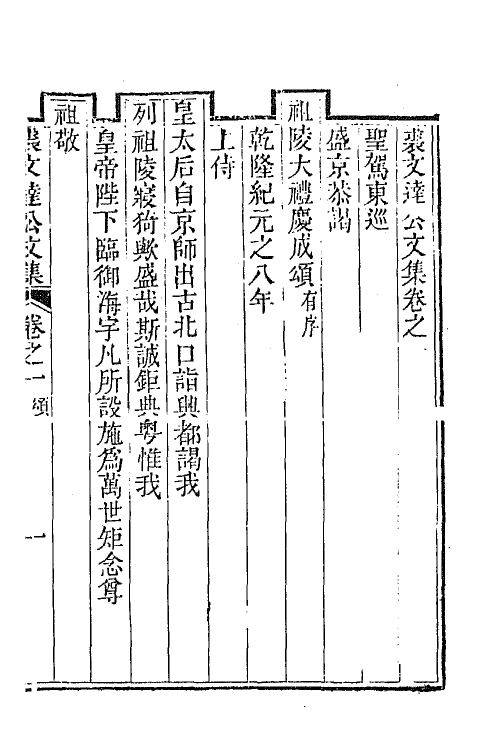 裘文達公文集卷之一
聖駕東巡
盛京恭謁
祖陵大禮慶成頌有序
乾隆紀元之八年
上侍
皇太后自京師出古北口詣興都謁我
列祖陵寢猗歟盛哉斯誠鉅典粵惟我
皇帝陛下臨御海宇凡所設施爲萬世矩念尊
祖敬
裘文達公文集 卷之一 頌 一